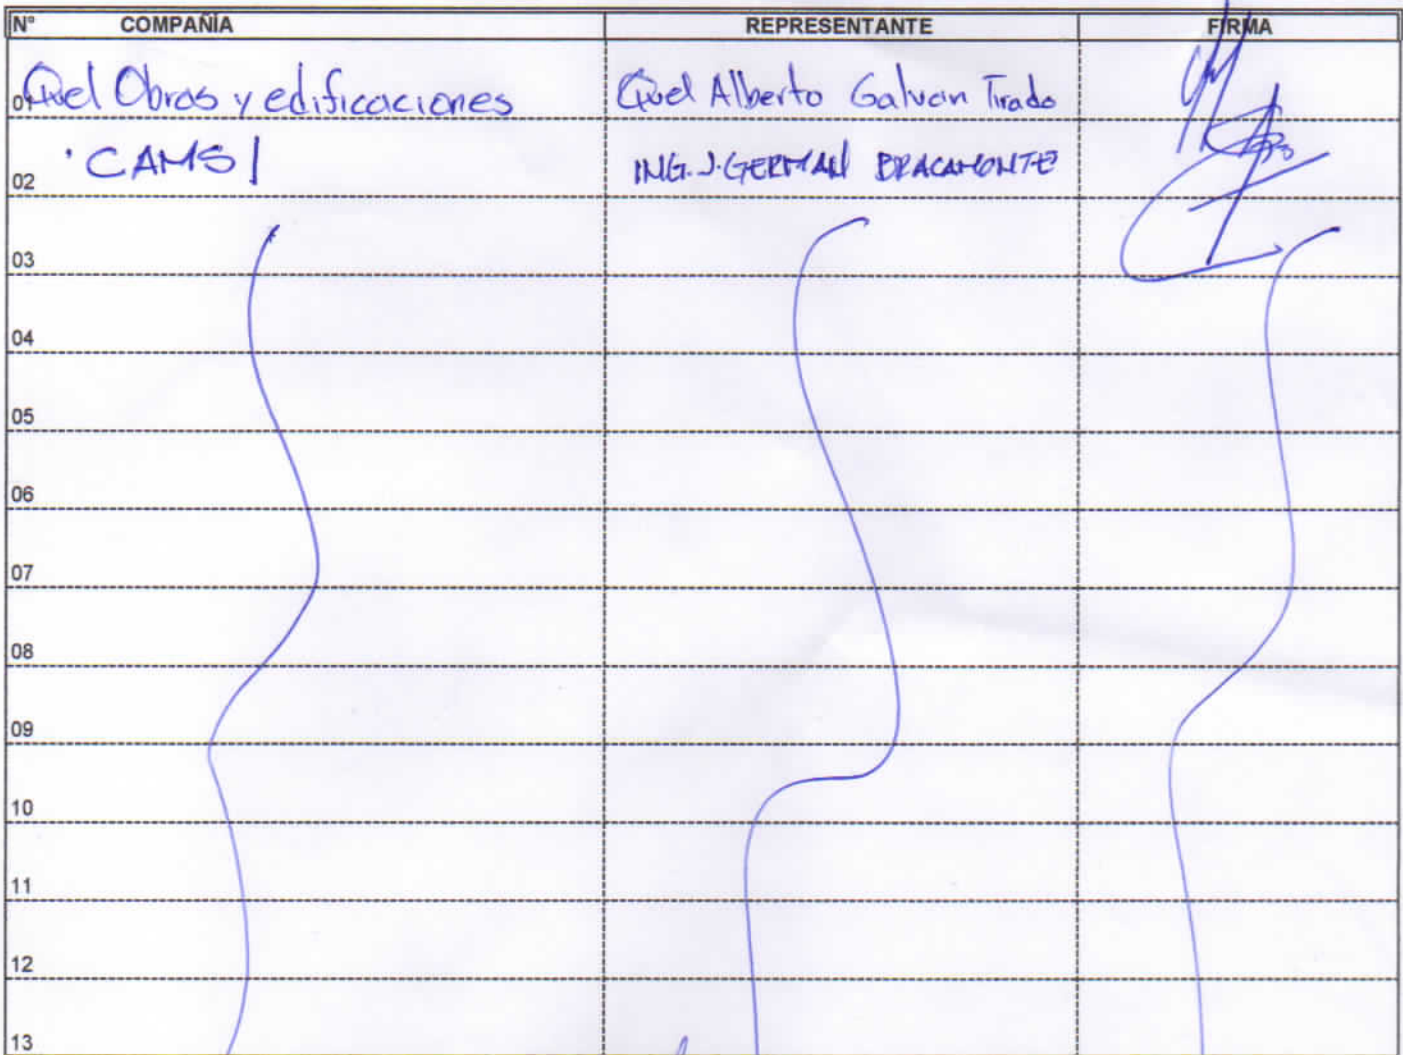 N° COMPAÑÍA REPRESENTANTE FIRMA
01 Quel Obras y edificaciones Quel Alberto Galvan Tirado
02 CAMSI ING. J. GERMAN BRACAMONTE
03
04
05
06
07
08
09
10
11
12
13